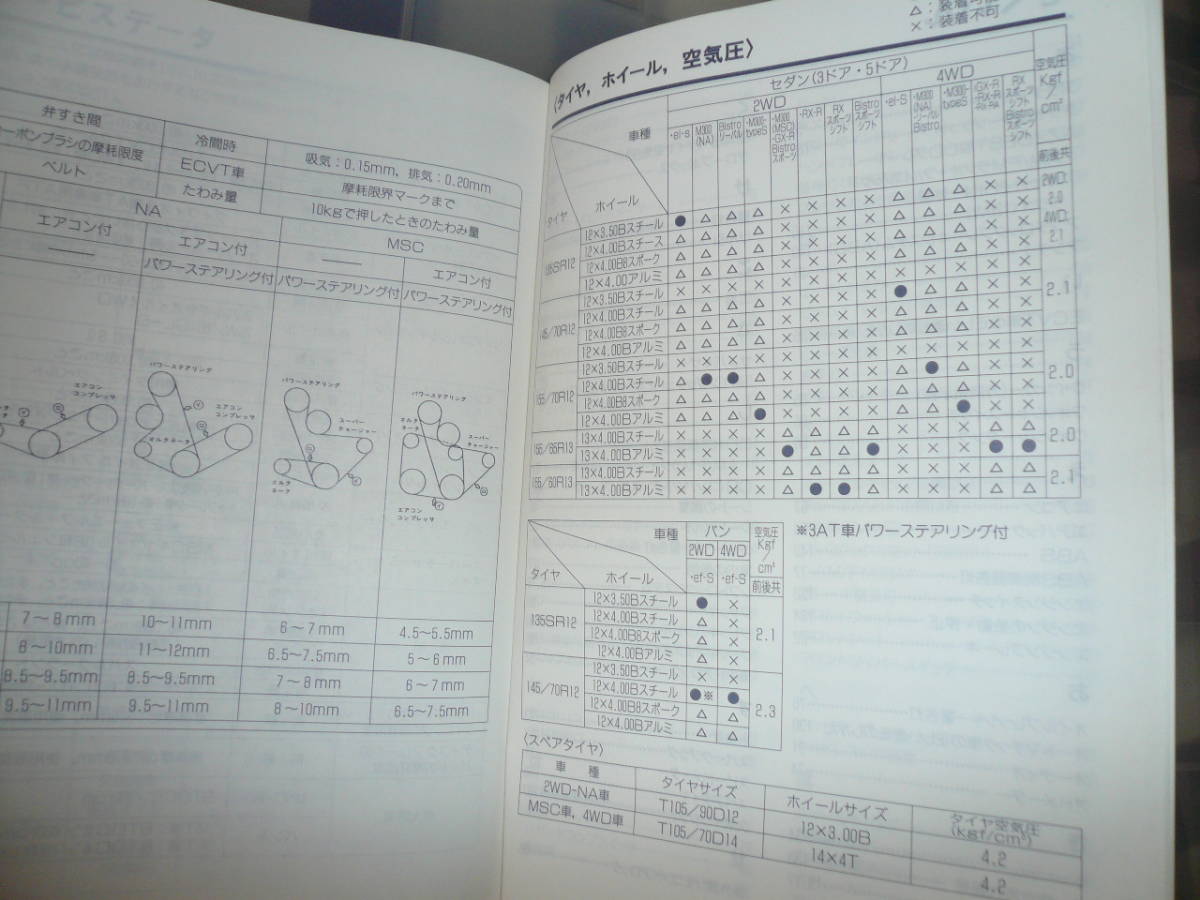 ビスデータ
弁すき間 冷間時 吸気：0.15mm，排気：0.20mm
ーボンブラシの摩耗限度 ECVT車 摩耗限界マークまで
ベルト たわみ量 10kgで押したときのたわみ量
NA MSC
エアコン付 ── エアコン付 ── エアコン付
パワーステアリング付 パワーステアリング付 パワーステアリング付
パワーステアリング
エアコン
コンプレッサ
オルタネータ
エアコン
コンプレッサ
パワーステアリング
スーパー
チャージャー
オルタ
ネータ
パワーステアリング
オルタ
ネータ
スーパー
チャージャー
エアコン
コンプレッサ
7～8mm 10～11mm 6～7mm 4.5～5.5mm
8～10mm 11～12mm 6.5～7.5mm 5～6mm
8.5～9.5mm 8.5～9.5mm 7～8mm 6～7mm
9.5～11mm 9.5～11mm 8～10mm 6.5～7.5mm
△：装着可能
×：装着不可
〈タイヤ，ホイール，空気圧〉
セダン(3ドア・5ドア)
2WD 4WD
車種 ホイール タイヤ
・ef-S
M300
(NA)
Bistro
リーバル
・M300-
typeS
・M300
(MSC)
・GX-R
Bistro
スポーツ
・RX-R
RX
スポーツ
シフト
Bistro
スポーツ
シフト
・ef-S
・M300
(NA)
・リーバル
Bistro
・M300-
typeS
・GX-R
・RX-R
RX
スポーツ
シフト
Bistro
スポーツ
シフト
空気圧
Kgf
／
cm²
前後共
12×3.50Bスチール ● △ △ △ × × × × △ △ △ × × 2WD: 2.0
12×4.00Bスチース △ △ △ △ × × × × △ △ △ × × 4WD: 2.1
12×4.00B8スポーク △ △ △ △ × × × × △ △ △ × ×
12×4.00アルミ △ △ △ △ × × × × △ △ △ × ×
145/70R12 12×3.50Bスチール × × × × × × × × × × × × × 2.1
12×4.00Bスチール △ △ △ △ × × × × ● △ △ × ×
12×4.00B8スポーク △ △ △ △ × × × × △ △ △ × ×
12×4.00Bアルミ △ △ △ △ × × × × △ △ △ × ×
155/70R12 12×3.50Bスチール × × × × × × × × × × × × × 2.0
12×4.00Bスチール △ ● ● △ × × × × △ ● △ × ×
12×4.00B8スポーク △ △ △ △ × × × × △ △ △ × ×
12×4.00Bアルミ △ △ △ ● × × × × △ △ ● × ×
155/65R13 13×4.00Bスチール × × × × △ △ △ △ × × × △ △ 2.0
13×4.00Bアルミ × × × × ● △ △ ● × × × ● ●
155/60R13 13×4.00Bスチール × × × × △ △ △ △ × × × △ △ 2.1
13×4.00Bアルミ × × × × △ ● ● △ × × × △ △
車種 バン 空気圧
2WD 4WD Kgf／cm²
タイヤ ホイール ・ef-S ・ef-S 前後共
135SR12 12×3.50Bスチール ● × 2.1
12×4.00Bスチール △ ×
12×4.00B8スポーク △ ×
12×4.00Bアルミ △ ×
145/70R12 12×3.50Bスチール × × 2.3
12×4.00Bスチール ●※ ●
12×4.00B8スポーク △ △
12×4.00Bアルミ △ △
※3AT車パワーステアリング付
〈スペアタイヤ〉
車種 タイヤサイズ ホイールサイズ タイヤ空気圧(kgf/cm²)
2WD-NA車 T105/90D12 12×3.00B 4.2
MSC車，4WD車 T105/70D14 14×4T 4.2